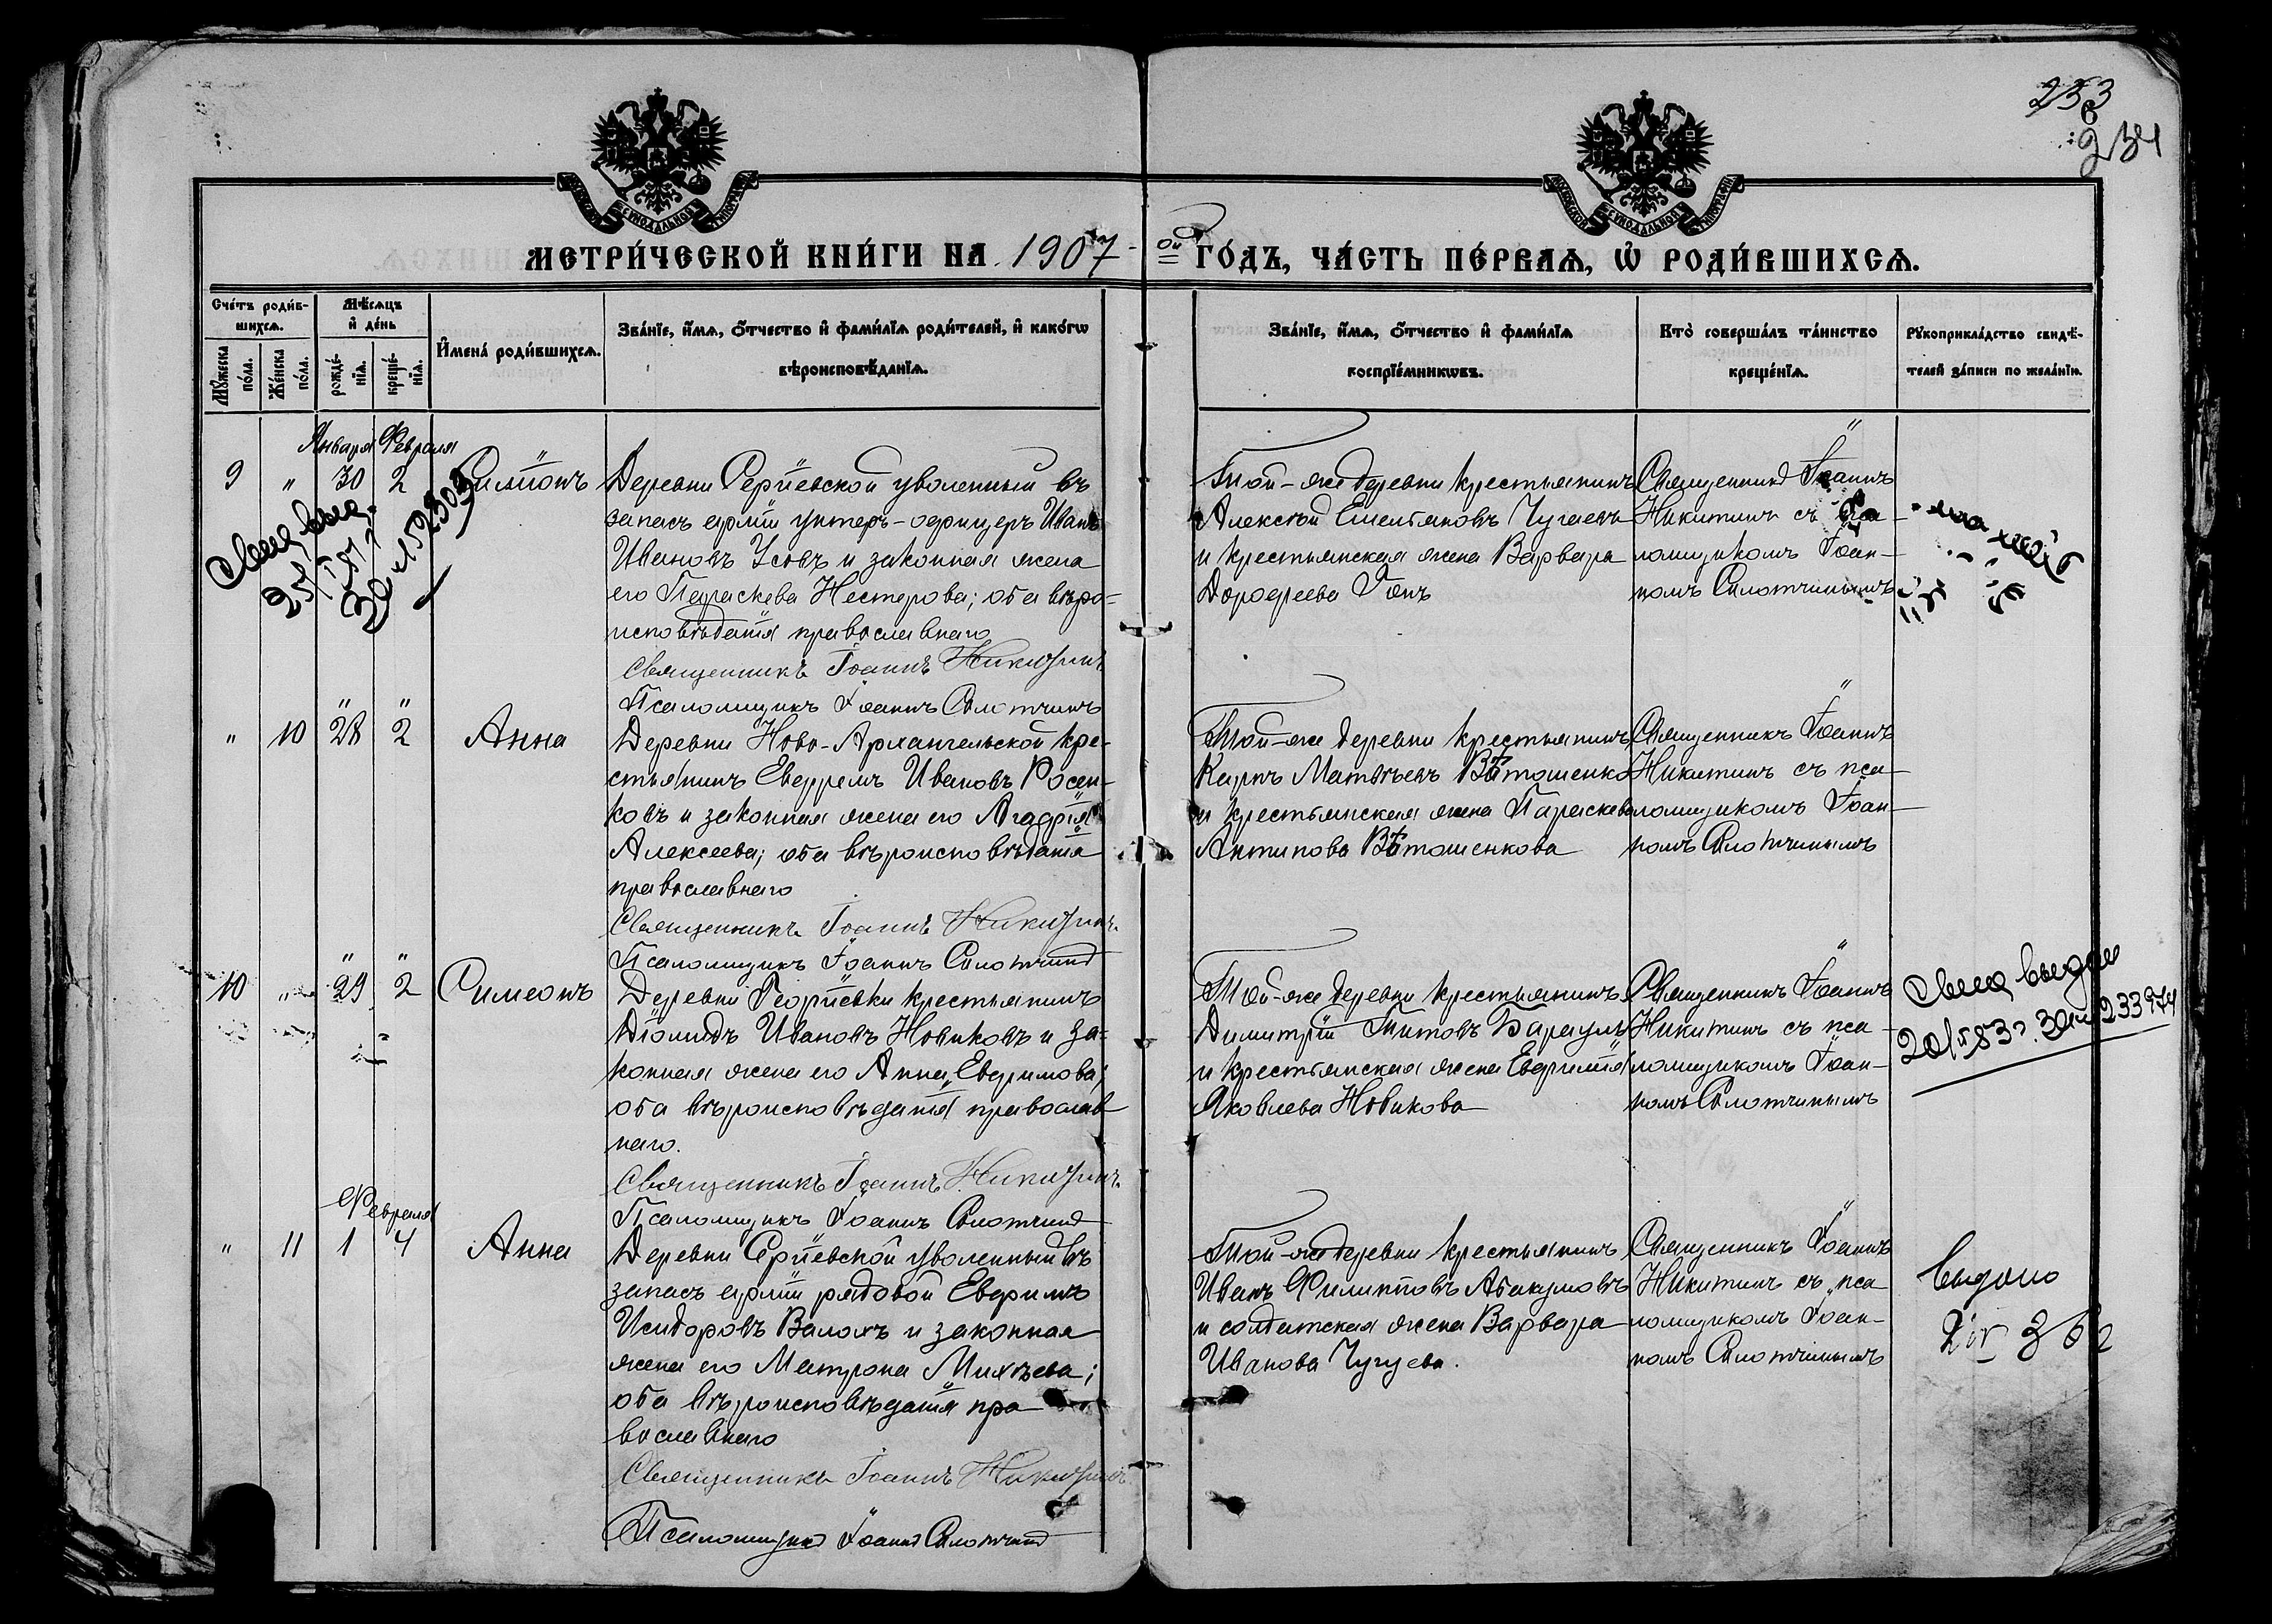 253
234
МЕТРИ́ЧЕСКОЙ КНИ́ГИ НА 1907-ой ГО́ДЪ, ЧА́СТЬ ПЕ́РВАѦ, Ѿ РОДИ́ВШИХСѦ.
Сче́тъ роди́в-
шихсѧ.
Мꙋ́жеска по́ла.
Же́нска по́ла.
Мѣ́сѧцъ
и҆ де́нь
рожде́-
нїѧ.
креще́-
нїѧ.
И҆мена́ роди́вшихсѧ.
Зва́нїе, и҆́мѧ, ѻ҆́тчество и҆ фами́лїѧ роди́телей, и҆ како́гѡ
вѣроисповѣ́данїѧ.
Зва́нїе, и҆́мѧ, ѻ҆́тчество и҆ фами́лїѧ
воспрїе́мникѡвъ.
Кто̀ соверша́лъ та́инство
креще́нїѧ.
Рꙋкоприкла́дство свидѣ́-
телей за́писи по жела́нїю.
Января Февраля
9 " 30 2 Симеонъ
Деревни Сергіевской уволенный въ
запасъ арміи унтеръ-офицеръ Иванъ
Ивановъ Усовъ и законная жена
его Параскева Нестерова; оба вѣро-
исповѣданія православнаго
Священникъ Іоаннъ Никитинъ
Псаломщикъ Іоаннъ Слотчинъ
Той-же деревни крестьянинъ
Алексѣй Емельяновъ Чугаевъ
и крестьянская жена Варвара
Дорофеева
Священникъ Іоаннъ
Никитинъ съ пса-
ломщикомъ Іоан-
номъ Слотчинымъ
" 10 28 2 Анна
Деревни Ново-Архангельской кре-
стьянинъ Евфремъ Ивановъ Росен-
ковъ и законная жена его Агафія
Алексеева; оба вѣроисповѣданія
православнаго
Священникъ Іоаннъ Никитинъ
Псаломщикъ Іоаннъ Слотчинъ
Той-же деревни крестьянинъ
Карпъ Матвѣевъ Вѣтошенко
и крестьянская жена Параскева
Антипова Вѣтошенкова
Священникъ Іоаннъ
Никитинъ съ пса-
ломщикомъ Іоан-
номъ Слотчинымъ
10 " 29 2 Симеонъ
Деревни Георгіевки крестьянинъ
Діомидъ Ивановъ Новиковъ и за-
конная жена его Анна Евфимова;
оба вѣроисповѣданія православ
наго.
Священникъ Іоаннъ Никитинъ
Псаломщикъ Іоаннъ Слотчинъ
Той-же деревни крестьянинъ
Димитрій Титовъ Бараулъ
и крестьянская жена Евфимія
Яковлева Новикова
Священникъ Іоаннъ
Никитинъ съ пса-
ломщикомъ Іоан-
номъ Слотчинымъ
Февраля
" 11 1 4 Анна
Деревни Сергіевской уволенный въ
запасъ арміи рядовой Евфимъ
Исидоровъ Валохъ и законная
жена его Матрона Михѣева;
оба вѣроисповѣданія пра
вославнаго
Священникъ Іоаннъ Никитинъ
Псаломщикъ Іоаннъ Слотчинъ
Той-же деревни крестьянинъ
Иванъ Филипповъ Абакумовъ
и солдатская жена Варвара
Иванова Чугуева.
Священникъ Іоаннъ
Никитинъ съ пса
ломщикомъ Іоан-
номъ Слотчинымъ
Выдано